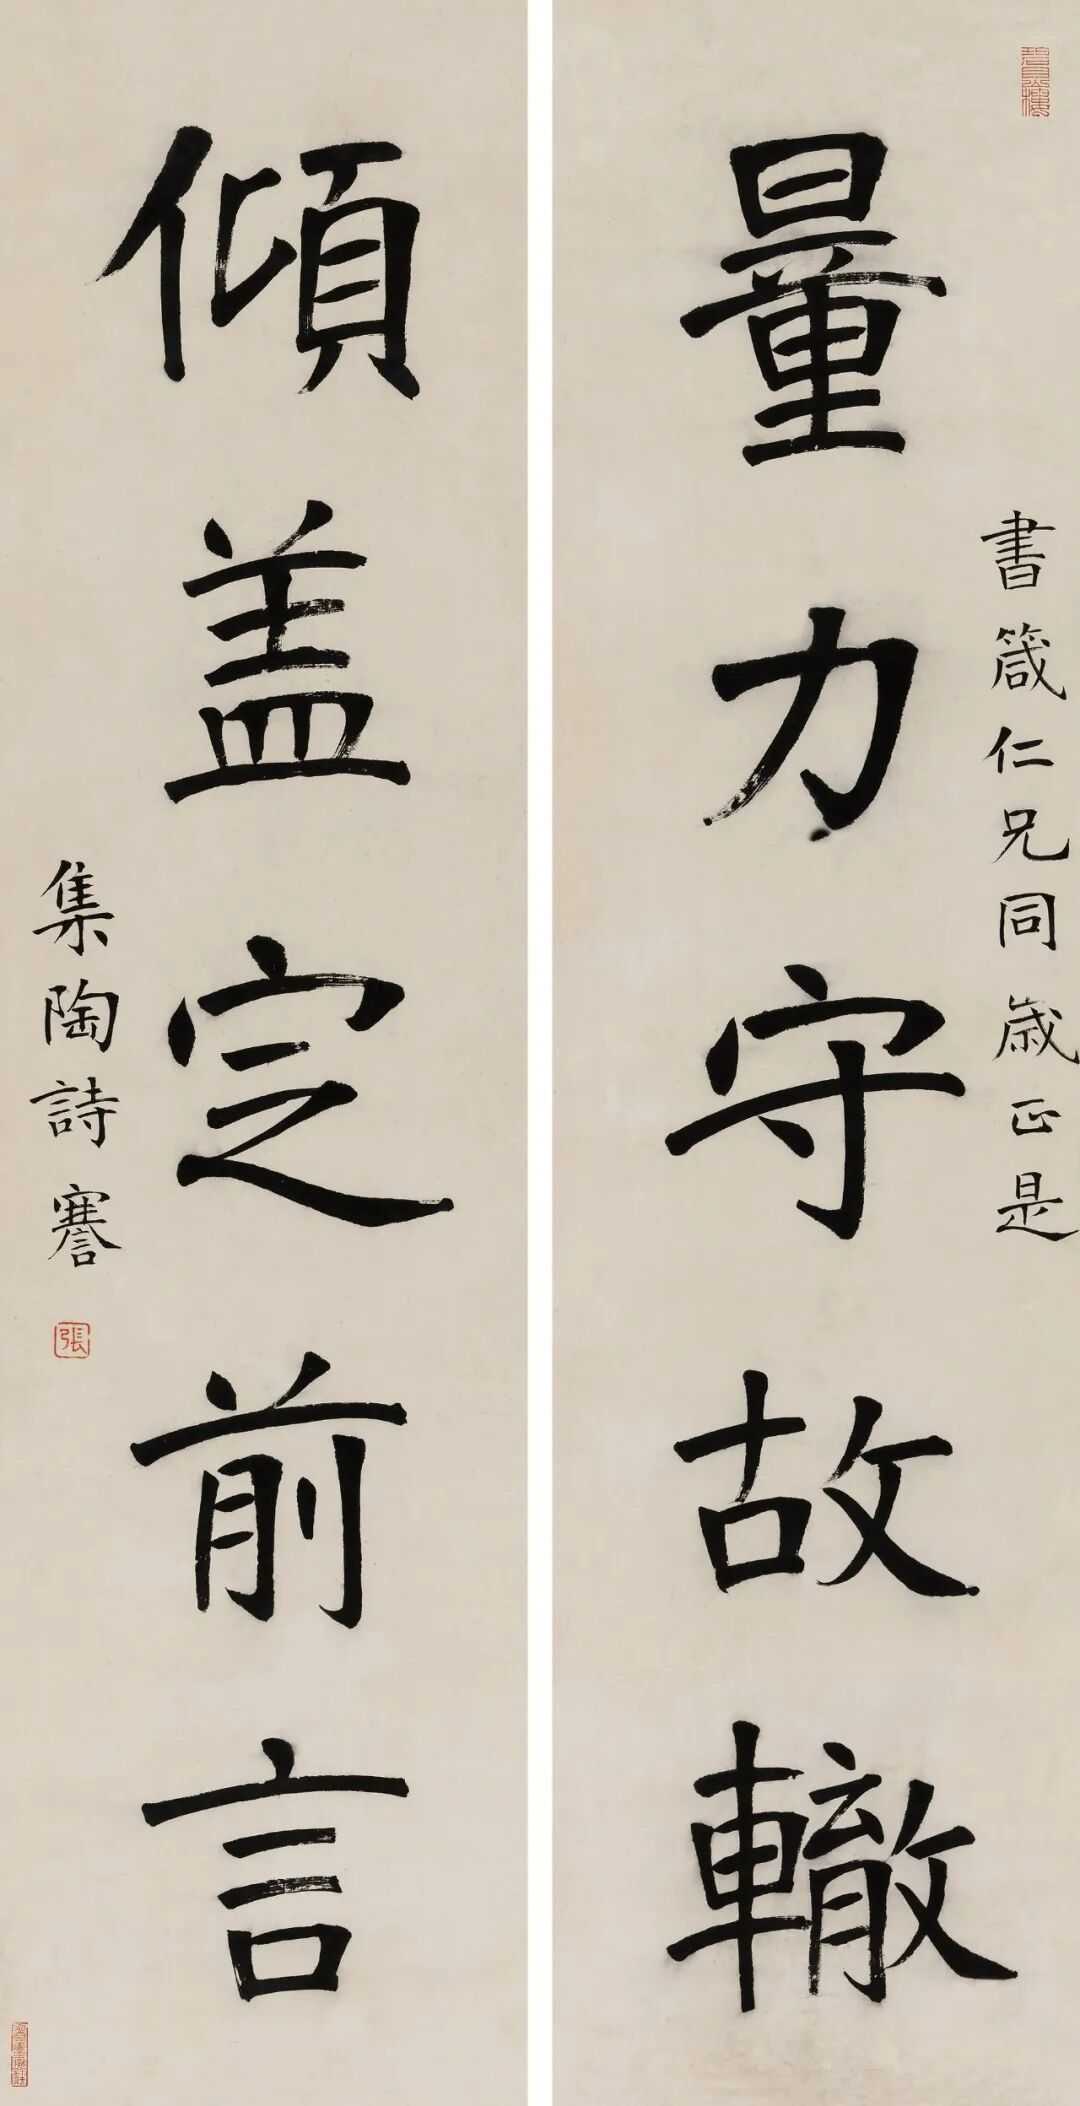 量力守故轍
書箴仁兄同歲正是
傾盖定前言
集陶詩 謇
張